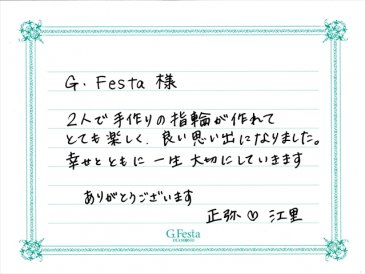 G. Festa 様
2人で手作りの指輪が作れて
とても楽しく、良い思い出になりました。
幸せとともに一生大切にしていきます
ありがとうございます
正弥♡江里
G.Festa
DIAMOND